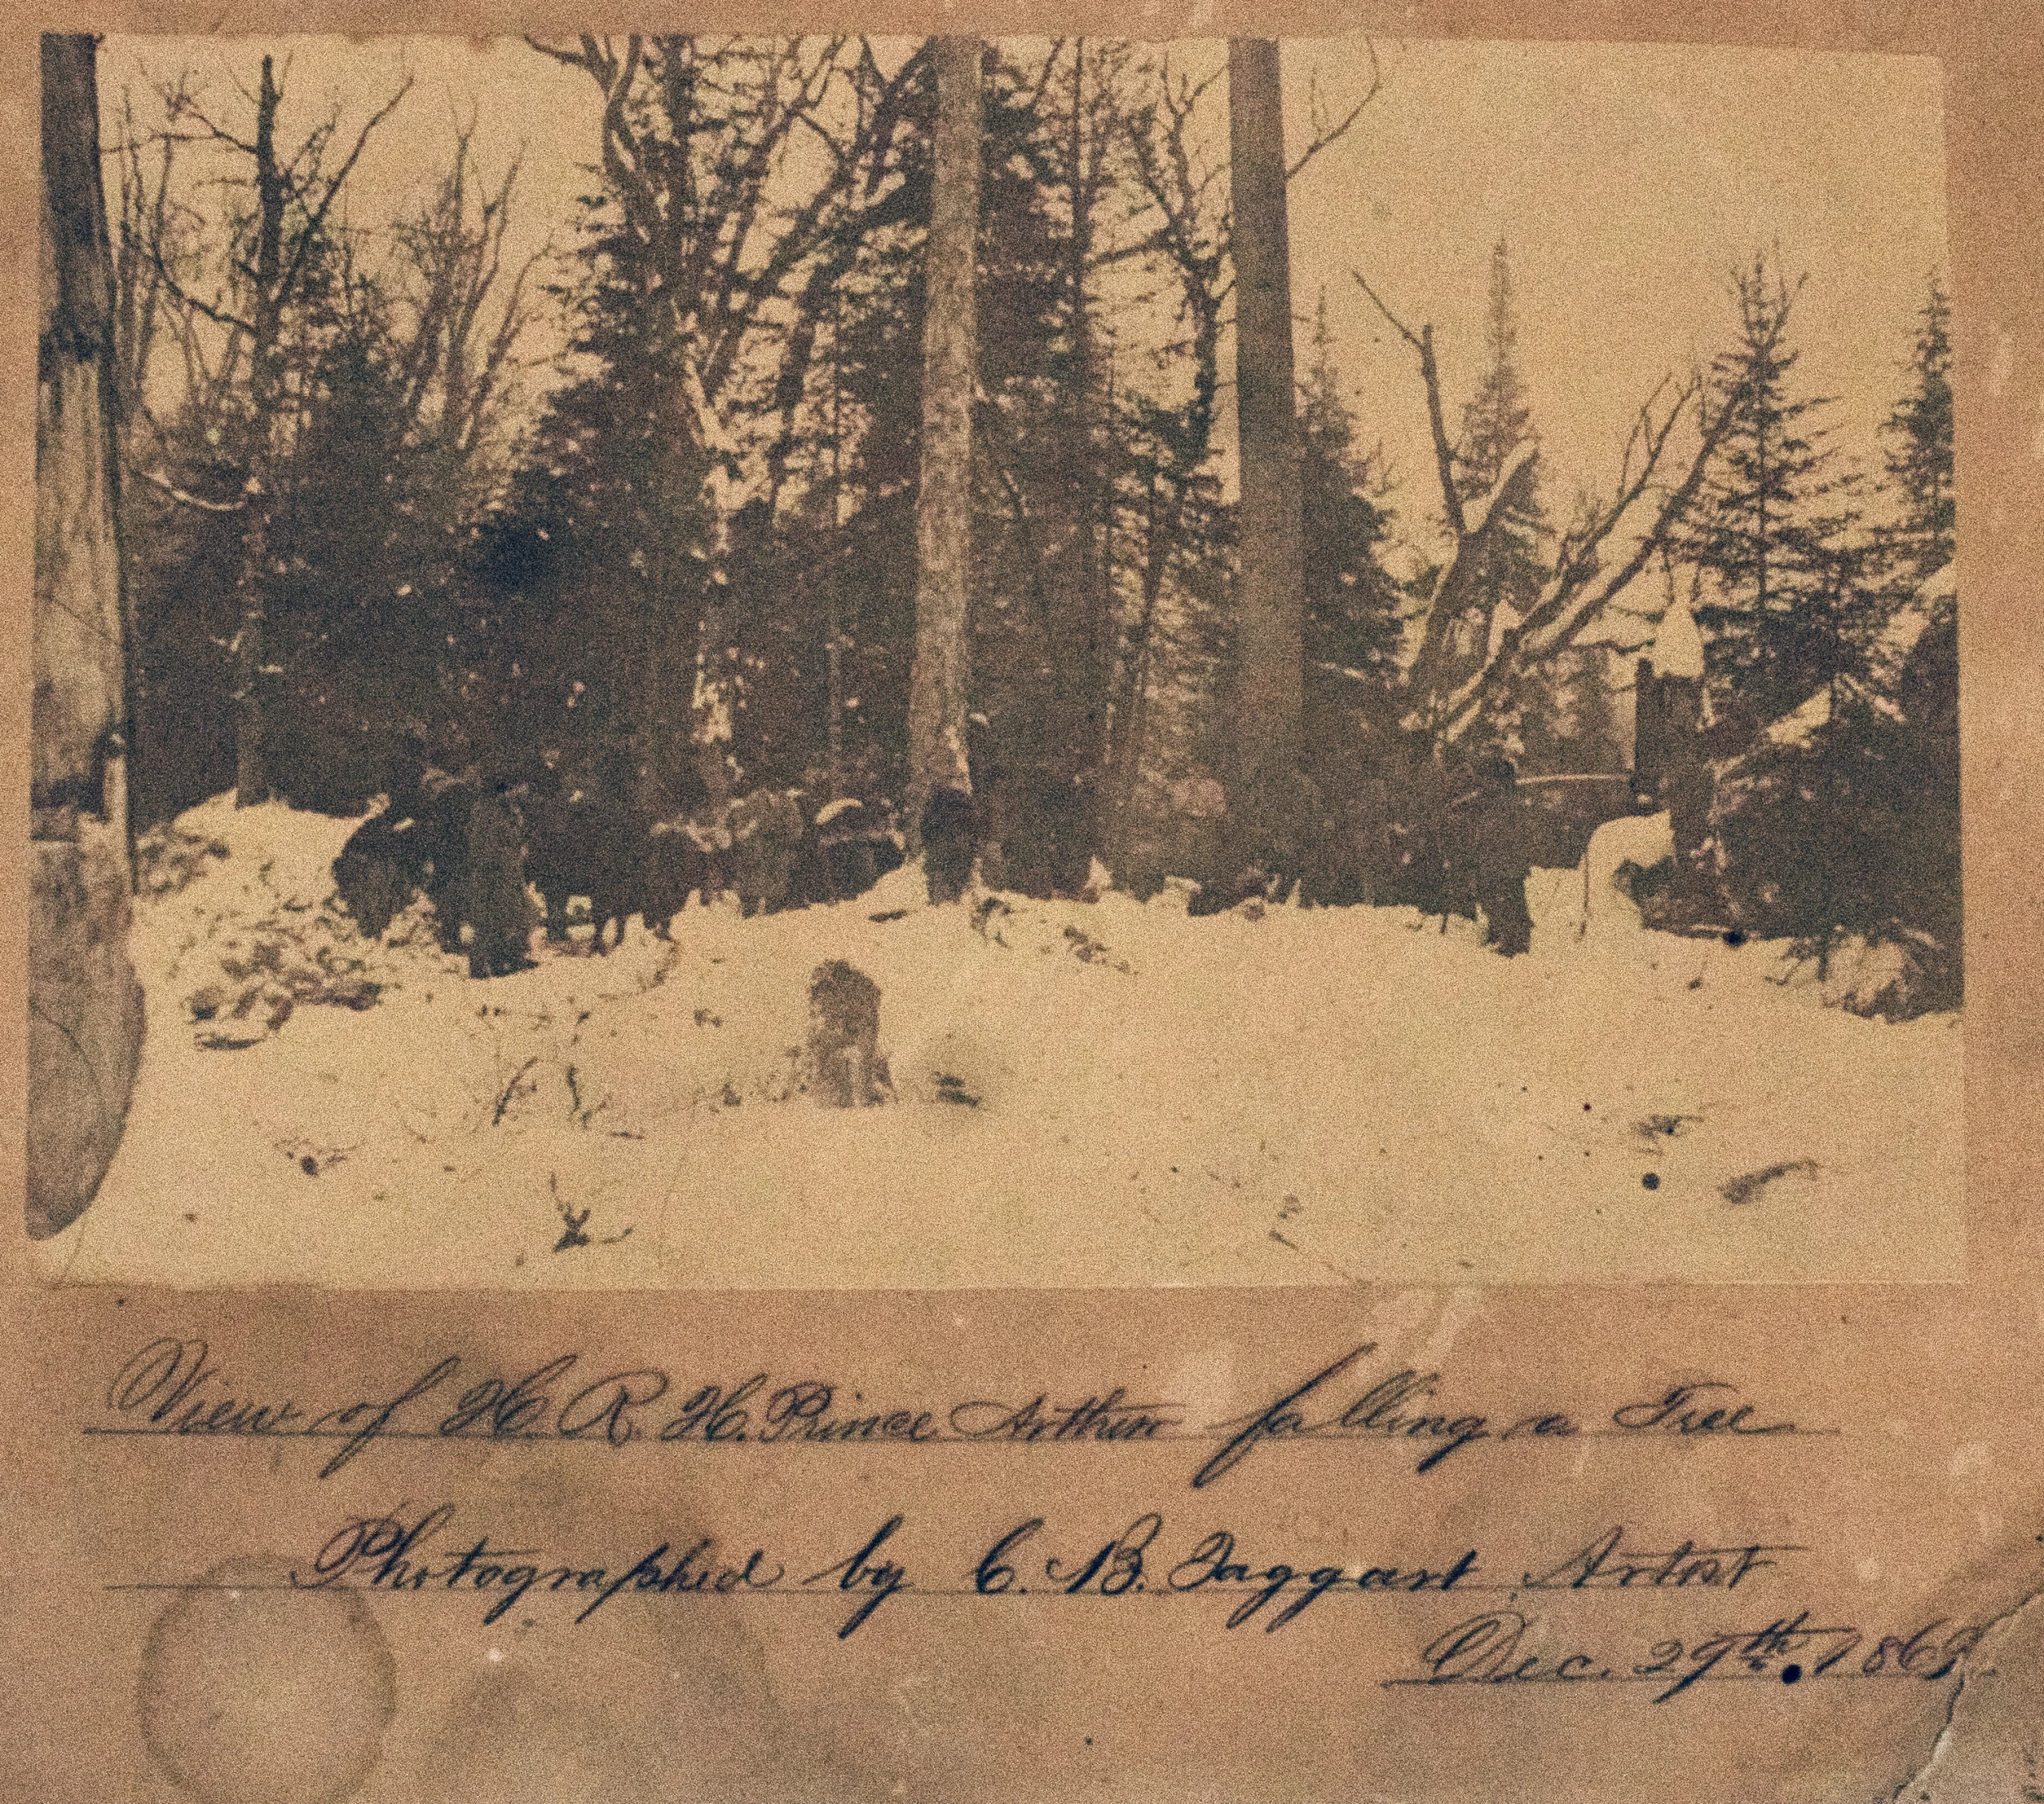 View of H. R. H. Prince Arthur falling a Tree
Photographed by C. B. Taggart Artist
Dec. 29th. 1869